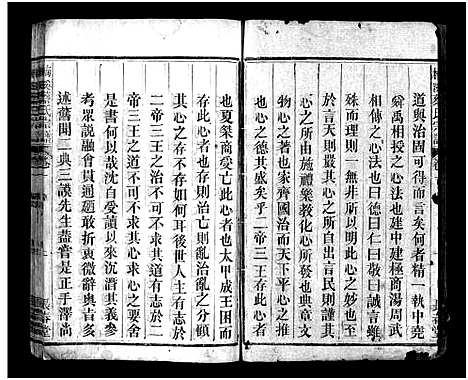 道與治固可得而言矣何者精一執中堯
舜禹相授之心法也建中建極商湯周武
相傳之心法也曰德曰仁曰敬曰誠言雖
殊而理則一無非所以明此心之妙也至
於言天則嚴其心之所自出言民則謹其
心之所由施禮樂教化心之發也典章文
物心之著也家齊國治而天下平心之推
也心之德其盛矣乎二帝三王存此心者
也夏桀商受亡此心者也太甲成王困而
存此心者也存則治亡則亂治亂之分顧
其心之存不存如何耳後世人主有志於
二帝三王之治不可不求其道有志於二
帝三王之道不可不求其心求心之要舍
是書何以哉沈自受讀以來沉潛其義參
考衆說融會貫通迺敢折衷微辭奧旨多
述舊聞二典三謨先生蓋嘗是正手澤尚